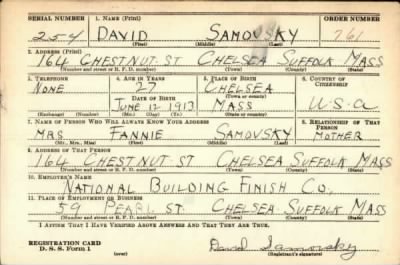 SERIAL NUMBER 1. NAME (Print) ORDER NUMBER
254 DAVID SAMOVSKY 761
(First) (Middle) (Last)
2. ADDRESS (Print)
164 CHESTNUT ST CHELSEA SUFFOLK MASS
(Number and street or R. F. D. number) (Town) (County) (State)
3. TELEPHONE 4. AGE IN YEARS 5. PLACE OF BIRTH 6. COUNTRY OF CITIZENSHIP
NONE 27 CHELSEA
DATE OF BIRTH (Town or county)
JUNE 12 1913 MASS U.S.A
(Exchange) (Number) (Mo.) (Day) (Yr.) (State or country)
7. NAME OF PERSON WHO WILL ALWAYS KNOW YOUR ADDRESS 8. RELATIONSHIP OF THAT PERSON
MRS. FANNIE SAMOVSKY MOTHER
(Mr., Mrs., Miss) (First) (Middle) (Last)
9. ADDRESS OF THAT PERSON
164 CHESTNUT ST CHELSEA SUFFOLK MASS
(Number and street or R. F. D. number) (Town) (County) (State)
10. EMPLOYER'S NAME
NATIONAL BUILDING FINISH CO.
11. PLACE OF EMPLOYMENT OR BUSINESS
59 PEARL ST. CHELSEA SUFFOLK MASS
(Number and street or R. F. D. number) (Town) (County) (State)
I AFFIRM THAT I HAVE VERIFIED ABOVE ANSWERS AND THAT THEY ARE TRUE.
REGISTRATION CARD David Samovsky
D. S. S. Form 1 (over) (Registrant's signature)